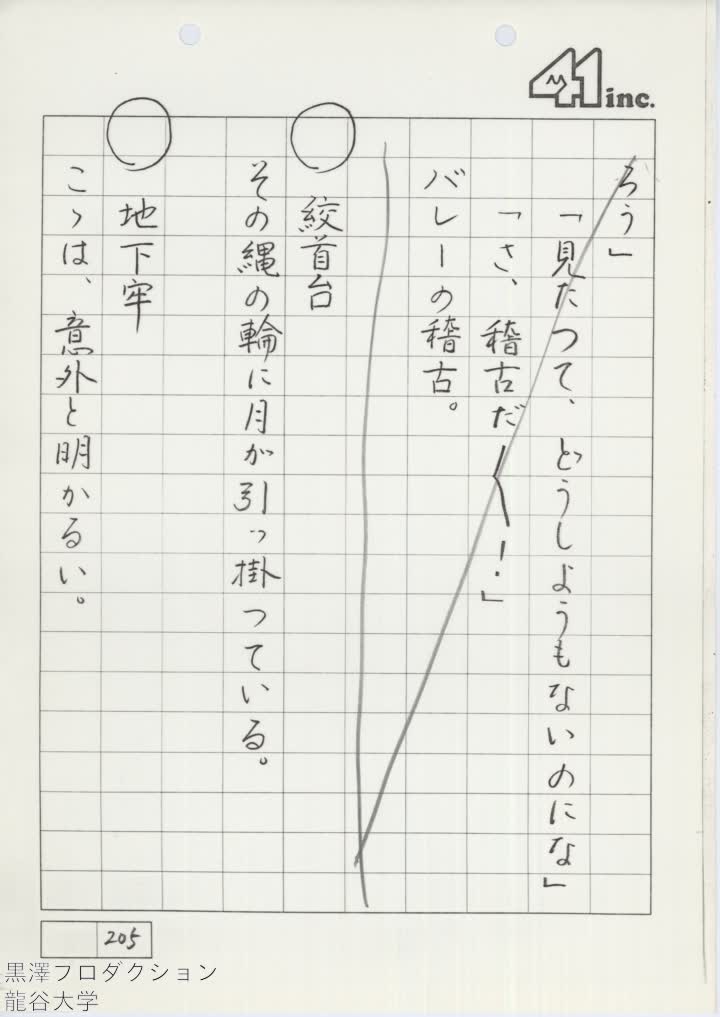 41 inc.
ろう」
「見たつて、どうしようもないのにな」
「さ、稽古だ〱！」
バレーの稽古。
○ 絞首台
その縄の輪に月が引っ掛つている。
○ 地下牢
こゝは、意外と明かるい。
205
黒澤フロダクション
龍谷大学